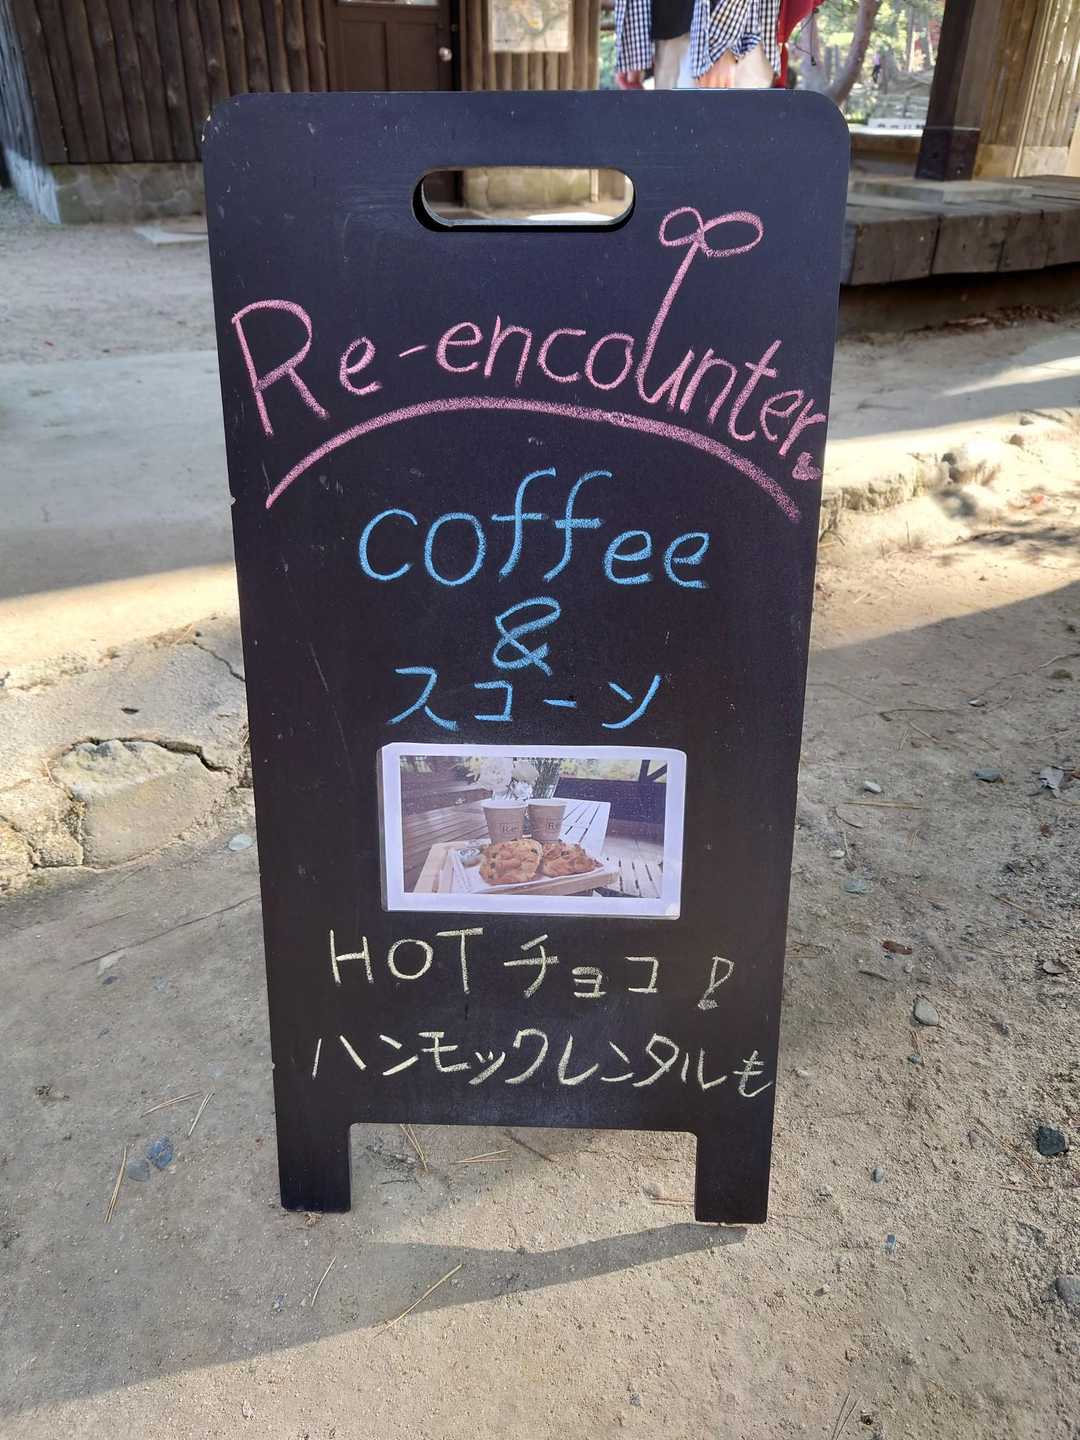 Re-encounter
coffee
&
スコーン
Re
Re
HOTチョコ!
ハンモックレンタルも